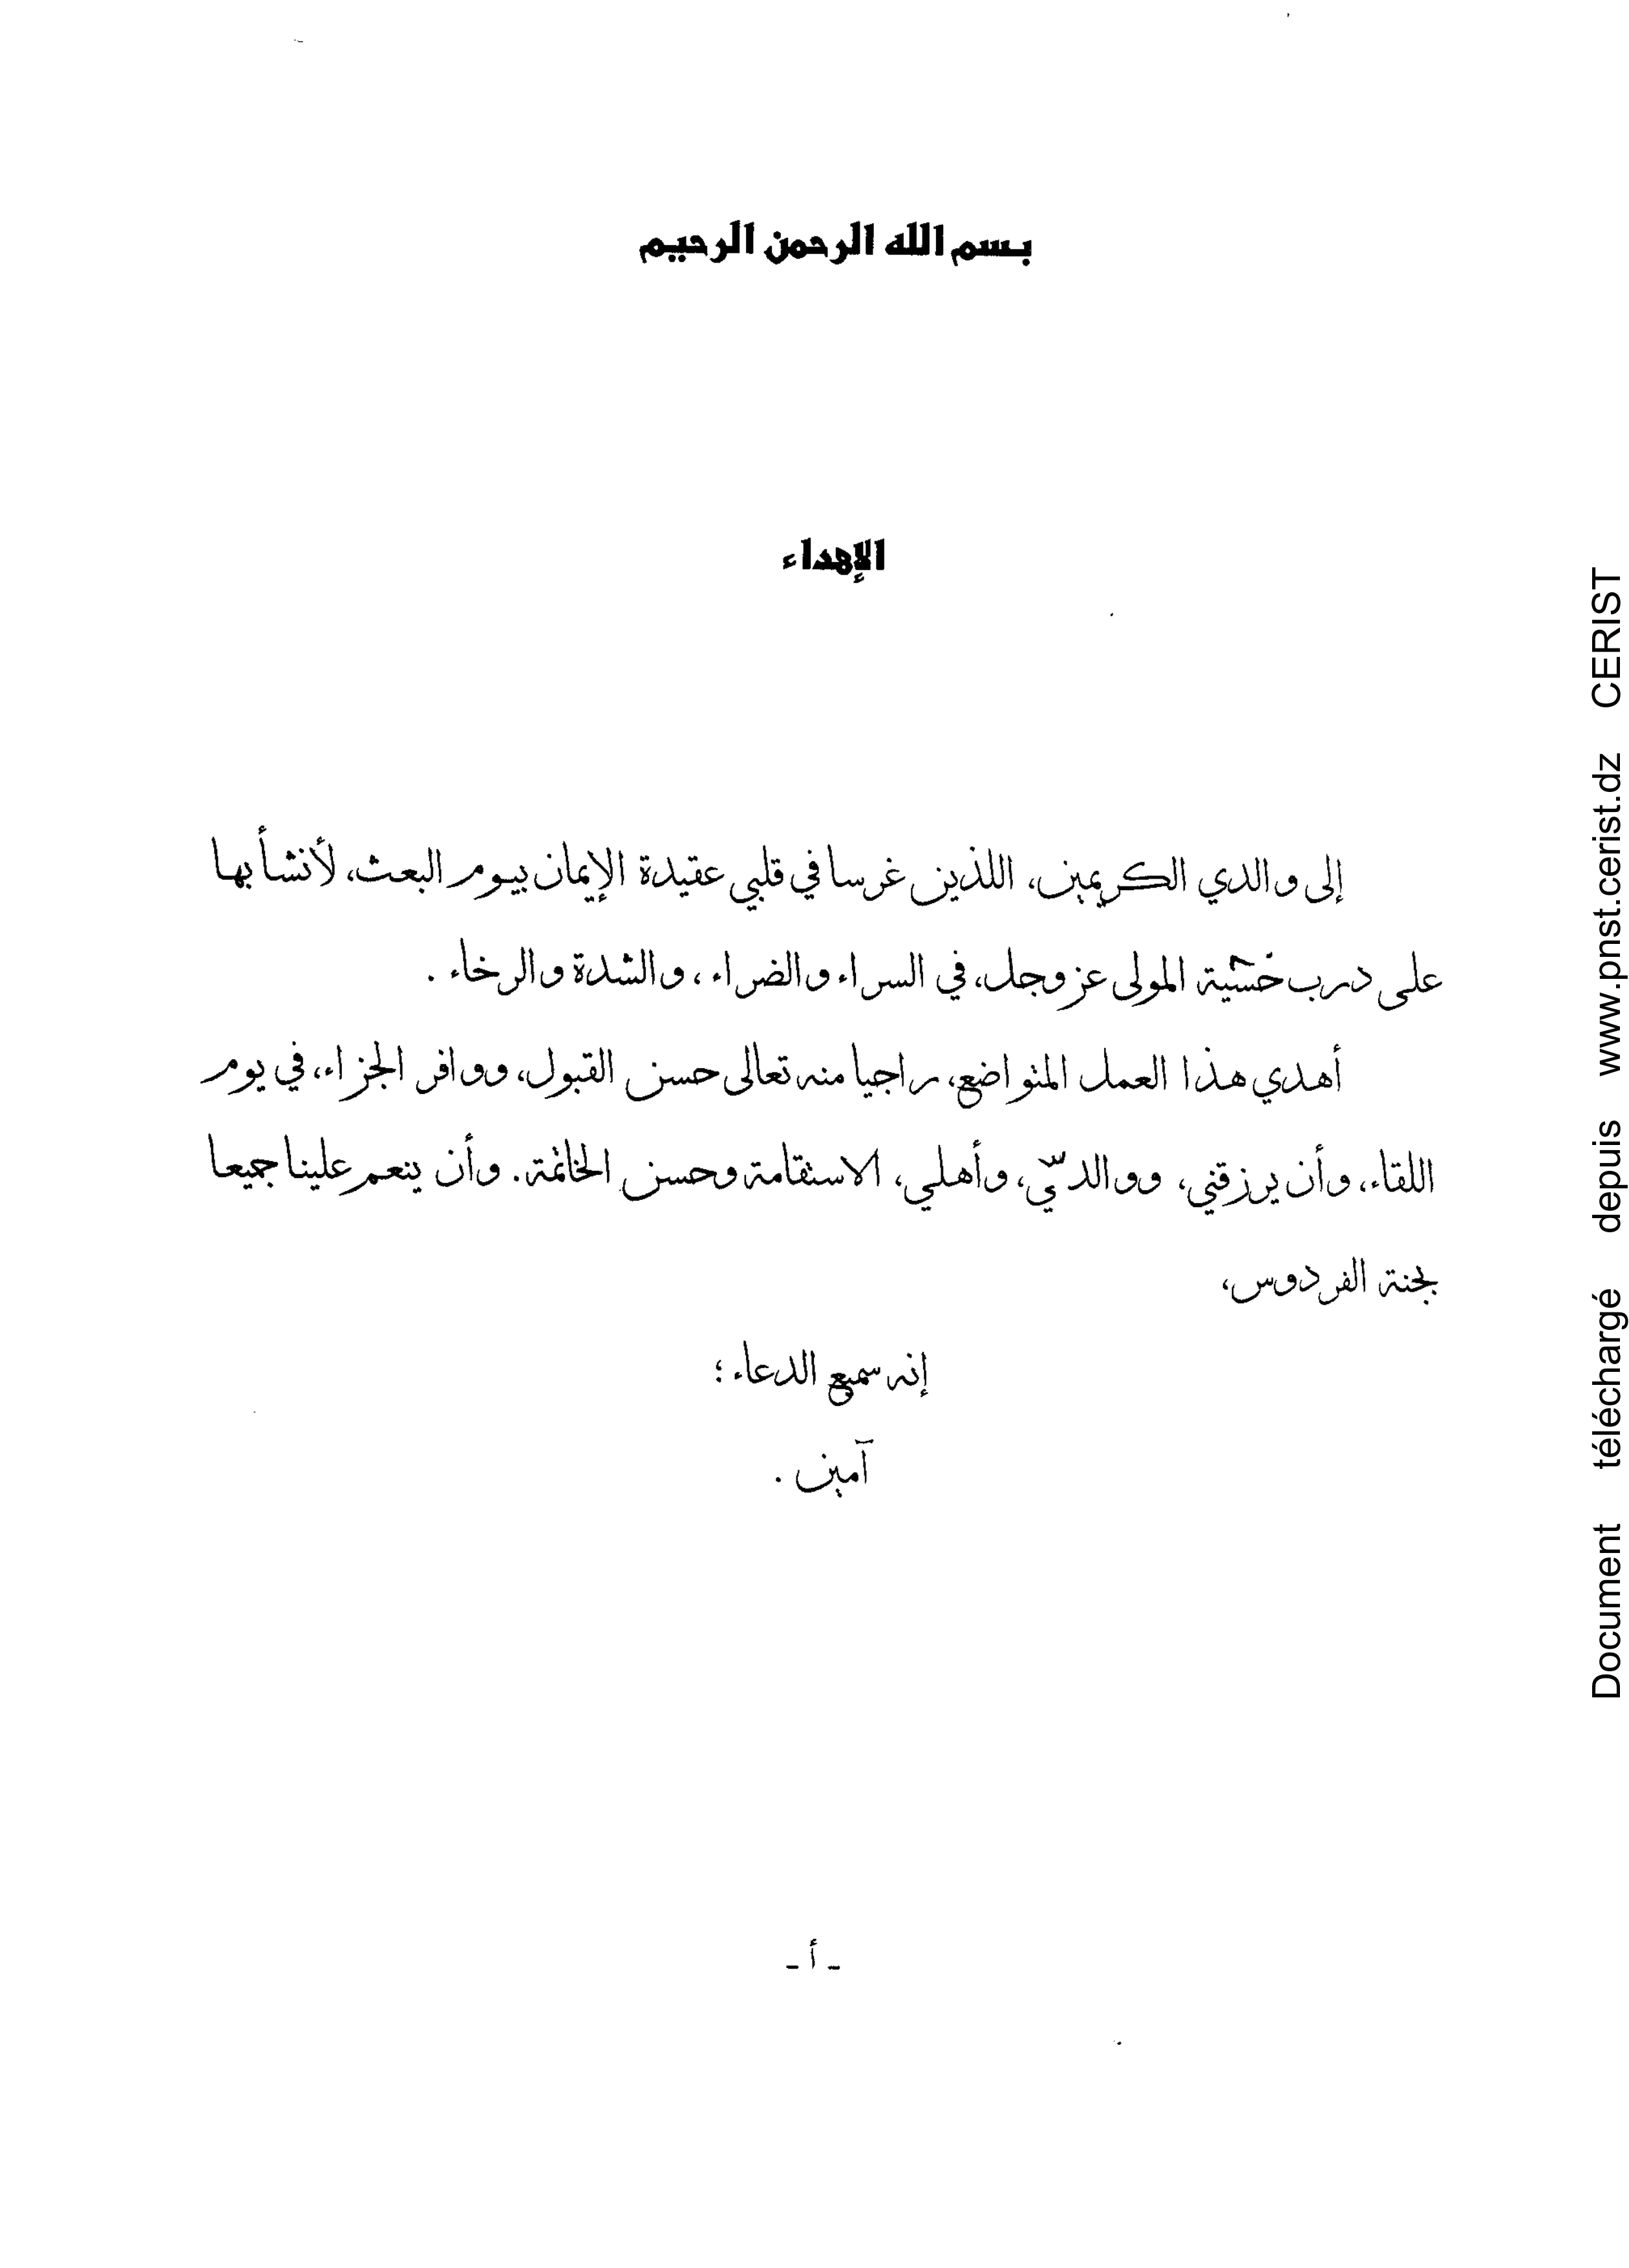 بسم الله الرحمن الرحيم
الإهداء
إلى والدي الكريمين، اللذين غرسا في قلبي عقيدة الإيمان بيوم البعث، لأنشأ بها
على درب خشية المولى عز وجل، في السراء والضراء، والشدة والرخاء.
أهدي هذا العمل المتواضع، راجيا منه تعالى حسن القبول، ووافر الجزاء، في يوم
اللقاء، وأن يرزقني، ووالديّ، وأهلي، الاستقامة وحسن الخاتمة. وأن ينعم علينا جميعا
بجنة الفردوس،
إنه سميع الدعاء؛
آمين.
- أ -
Document téléchargé depuis www.pnst.cerist.dz CERIST